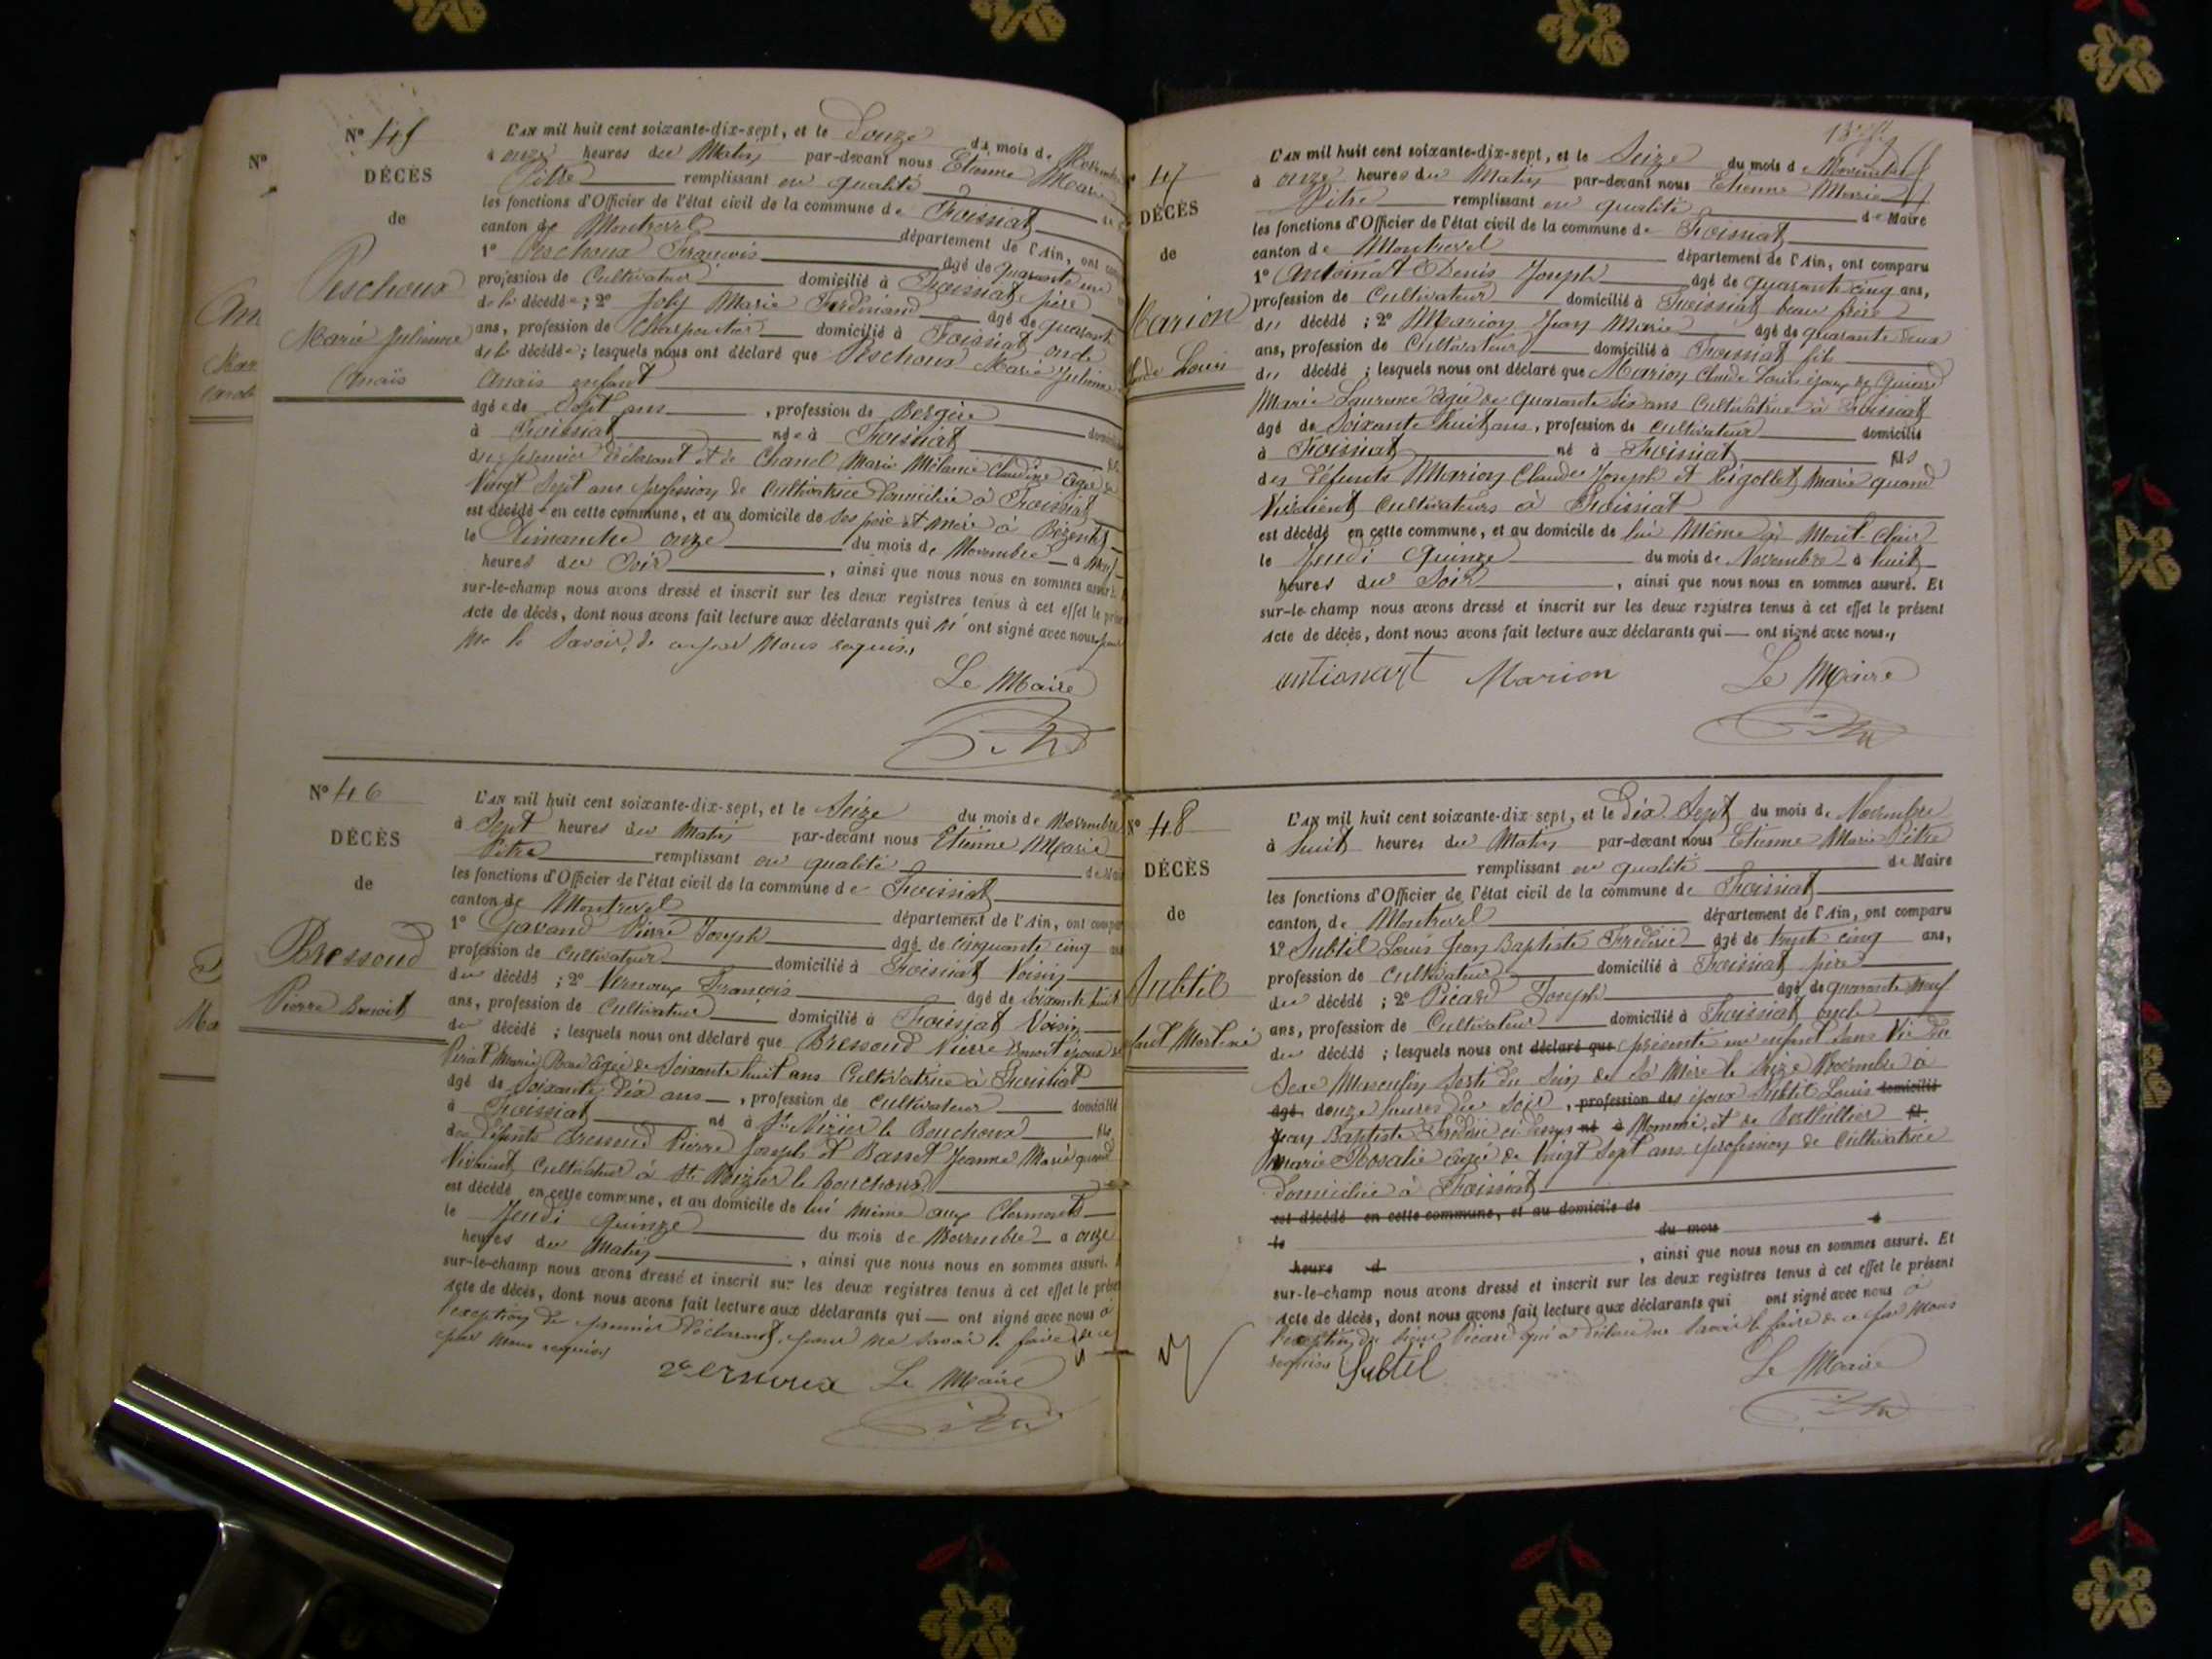 N° 45
DÉCÈS
de
Peschoux
Marie Julienne
Anaïs
L'AN mil huit cent soixante-dix-sept, et le Douze du mois de Novembre
à onze heures du Matin par-devant nous Etienne Marie
Pitre remplissant en qualité de
les fonctions d'Officier de l'état civil de la commune de Foissiat
canton de Montrevel département de l'Ain, ont comparu
1° Peschoux François âgé de quarante un
profession de Cultivateur domicilié à Foissiat père
de la décédée ; 2° Joly Marie Ferdinand âgé de quarante
ans, profession de Charpentier domicilié à Foissiat oncle
de la décédée ; lesquels nous ont déclaré que Peschoux Marie Julienne
Anaïs enfant
âgée de Sept ans , profession de Bergère domiciliée
à Foissiat née à Foissiat fille
du premier déclarant et de Chanel Marie Mélanie Claudine âgée de
Vingt Sept ans profession de Cultivatrice domiciliée à Foissiat
est décédée en cette commune, et au domicile de ses père et mère à Bézentet
le Dimanche onze du mois de Novembre à neuf
heures du Soir , ainsi que nous nous en sommes assuré. Et
sur-le-champ nous avons dressé et inscrit sur les deux registres tenus à cet effet le présent
acte de décès, dont nous avons fait lecture aux déclarants qui n'ont signé avec nous pour
ne le savoir, de ce par nous requis.
Le Maire
Pitre
N° 46
DÉCÈS
de
Bressoud
Pierre Benoit
L'AN mil huit cent soixante-dix-sept, et le Seize du mois de Novembre
à Sept heures du Matin par-devant nous Etienne Marie
Pitre remplissant en qualité de Maire
les fonctions d'Officier de l'état civil de la commune de Foissiat
canton de Montrevel département de l'Ain, ont comparu
1° Gavand Pierre Joseph âgé de cinquante cinq ans
profession de Cultivateur domicilié à Foissiat Voisin
du décédé ; 2° Vernoux François âgé de soixante huit
ans, profession de Cultivateur domicilié à Foissiat Voisin
du décédé ; lesquels nous ont déclaré que Bressoud Pierre Benoit époux de
Marie âgée de Soixante huit ans Cultivatrice à Foissiat
âgé de Soixante Dix ans , profession de Cultivateur domicilié
à Foissiat né à St Nizier le Bouchoux fils
des défunts Bressoud Pierre Joseph et Basset Jeanne Marie quand
Vivaient Cultivateur à St Nizier le Bouchoux
est décédé en cette commune, et au domicile de lui même aux Clermonts
le Jeudi quinze du mois de Novembre à onze
heures du Matin , ainsi que nous nous en sommes assuré. Et
sur-le-champ nous avons dressé et inscrit sur les deux registres tenus à cet effet le présent
acte de décès, dont nous avons fait lecture aux déclarants qui — ont signé avec nous à
l'exception du premier déclarant pour ne savoir le faire de ce
par nous requis
Vernoux Le Maire
Pitre
N° 47
DÉCÈS
de
Marion
Claude Louis
L'AN mil huit cent soixante-dix-sept, et le Seize du mois de Novembre
à onze heures du Matin par-devant nous Etienne Marie
Pitre remplissant en qualité de Maire
les fonctions d'Officier de l'état civil de la commune de Foissiat
canton de Montrevel département de l'Ain, ont comparu
1° Antoinat Denis Joseph âgé de quarante cinq ans,
profession de Cultivateur domicilié à Foissiat beau frère
du décédé ; 2° Marion Jean Marie âgé de quarante deux
ans, profession de Cultivateur domicilié à Foissiat fils
du décédé ; lesquels nous ont déclaré que Marion Claude Louis époux de
Marie Laurence âgée de quarante six ans Cultivatrice à Foissiat
âgé de Soixante huit ans, profession de Cultivateur domicilié
à Foissiat né à Foissiat fils
des défunts Marion Claude Joseph et Pigollet Marie quand
Vivaient Cultivateurs à Foissiat
est décédé en cette commune, et au domicile de lui Même à Mont-Clair
le Jeudi Quinze du mois de Novembre à huit
heures du Soir , ainsi que nous nous en sommes assuré. Et
sur-le-champ nous avons dressé et inscrit sur les deux registres tenus à cet effet le présent
acte de décès, dont nous avons fait lecture aux déclarants qui — ont signé avec nous.
Marion Le Maire
Pitre
N° 48
DÉCÈS
de
Subtil
enfant Mort né
L'AN mil huit cent soixante-dix-sept, et le Dix Sept du mois de Novembre
à huit heures du Matin par-devant nous Etienne Marie Pitre
remplissant en qualité de Maire
les fonctions d'Officier de l'état civil de la commune de Foissiat
canton de Montrevel département de l'Ain, ont comparu
1° Subtil Louis Jean Baptiste Frédéric âgé de trente cinq ans,
profession de Cultivateur domicilié à Foissiat père
du décédé ; 2° Picard Joseph âgé de quarante neuf
ans, profession de Cultivateur domicilié à Foissiat oncle
du décédé ; lesquels nous ont déclaré que présenté un enfant sans Vie du
Sexe Masculin sorti du sein de sa Mère le seize Novembre à
âgé douze heures du Soir , profession des époux Subtil Louis domicilié
Jean Baptiste Frédéric ci dessus né à Nommé, et de Berthillier fil
Marie Rosalie âgée de Vingt Sept ans profession de Cultivatrice
Domiciliée à Foissiat
est décédé en cette commune, et au domicile de
le du mois à
heure d , ainsi que nous nous en sommes assuré. Et
sur-le-champ nous avons dressé et inscrit sur les deux registres tenus à cet effet le présent
acte de décès, dont nous avons fait lecture aux déclarants qui ont signé avec nous à
l'exception du sieur Picard qui a déclaré ne savoir le faire de ce par nous
requis Subtil Le Maire
Pitre